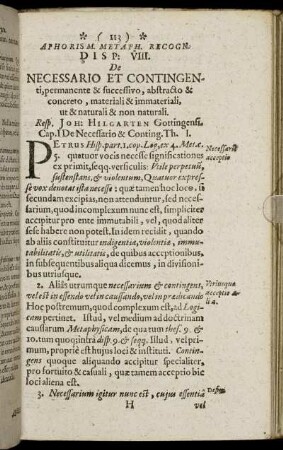 ( 113 )
APHORISM. METAPH. RECOGN.
DISP: VIII.
De
NECESSARIO ET CONTINGEN-
ti, permanente & successivo, abstracto &
concreto, materiali & immateriali,
ut & naturali & non naturali.
Resp. JOH: HILGARTEN Gottingensi.
Cap. I De Necessario & Conting. Th. I.
PETRUS Hisp. part. 1. cop. Log. ex 4. Metæ.
5. quatuor vocis necesse significationes
ex primit, seqq. versiculis: Vtile perpetuũ,
sustentans, & violentum, Quatuor expres-
se vox denotat ista necesse: quæ tamen hoc loco, si
secundam excipias, non attenduntur, sed neces-
sarium, quod incomplexum nunc est, simpliciter
accipitur pro ente immutabili, vel, quod aliter
sese habere non potest. In idem recidit, quando
ab aliis constituitur indigentiæ, violentiæ, immu-
tabilitatis, & utilitatis, de quibus acceptionibus,
in subsequentibus aliqua dicemus, in divisioni-
bus utriusque.
Necessarii
acceptio
2. Aliàs utrumque necessarium & contingens,
vel est in essendo vel in caussando, vel in prædicando
Hoc postremum, quod complexum est, ad Logi-
cam pertinet. Istud, vel medium ad doctrinam
caussarum Metaphysicam, de qua tum thes. 9. &
10. tum quoq; infrà disp. 9. & seqq. Illud, vel pri-
mum, propriè est hujus loci & instituti. Contin-
gens quoque aliquando accipitur specialiter,
pro fortuito & casuali, quæ tamen acceptio hîc
loci aliena est.
Utriusque
acceptio
3. Necessarium igitur nunc est, cujus essentia
H
vel